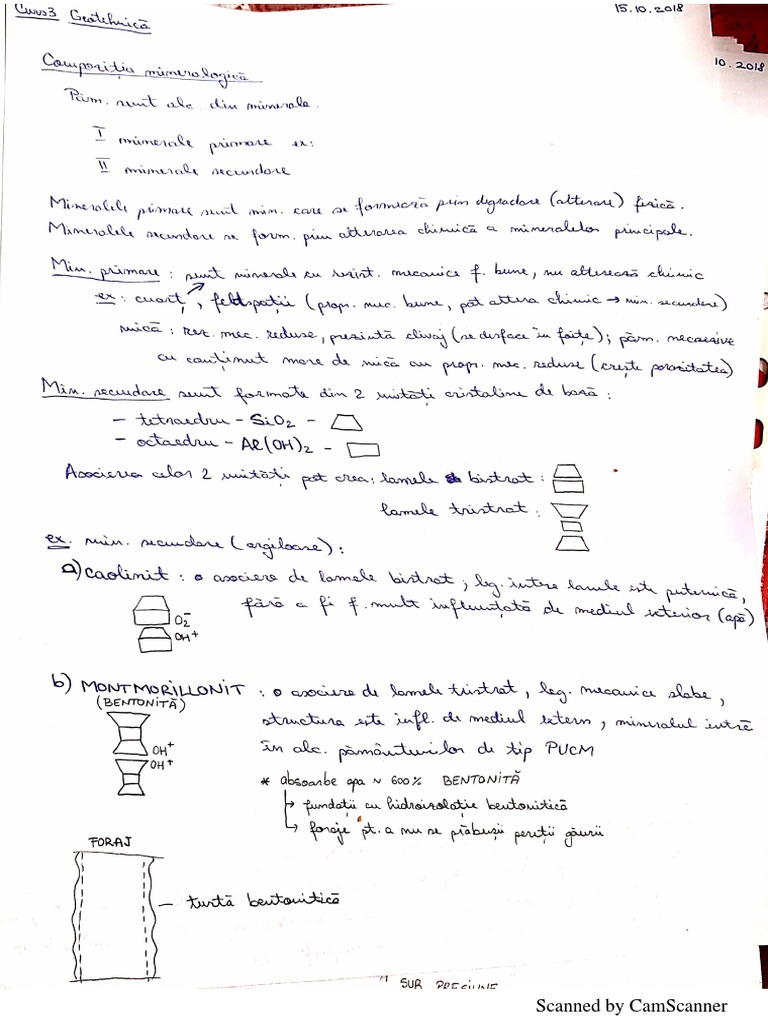 Curs3 Geotehnică
15.10.2018
10.2018
Compoziția mineralogică
Păm. sunt alc. din minerale.
I minerale primare ex:
II minerale secundare
Mineralele primare sunt min. care se formează prin degradare (alterare) fizică.
Mineralele secundare se form. prin alterarea chimică a mineralelor principale.
Min. primare : sunt minerale cu rezist. mecanice f. bune, nu alterează chimic
ex: cuarț, feldspații (propr. mec. bune, pot altera chimic → min. secundare)
mică : rez. mec. reduse, prezintă clivaj (se desface în foițe); păm. necoezive
cu conținut mare de mică au propr. mec. reduse (crește porozitatea)
Min. secundare sunt formate din 2 unități cristaline de bază :
– tetraedru – SiO2 –
– octaedru – Al(OH)2 –
Asocierea celor 2 unități pot crea: lamele bistrat :
lamele tristrat :
ex. min. secundare (argiloase) :
a) caolinit : o asociere de lamele bistrat; leg. între lamele este puternică,
fără a fi f. mult influențată de mediul exterior (apă)
O2-
OH+
b) MONTMORILLONIT : o asociere de lamele tristrat, leg. mecanice slabe,
(BENTONITĂ)
structura este infl. de mediul extern, mineralul intră
în alc. pământurilor de tip PUCM
OH+
OH+
* absoarbe apa ~ 600% BENTONITĂ
→ fundații cu hidroizolație bentonitică
→ foraje pt. a nu se prăbuși pereții găurii
FORAJ
– turtă bentonitică
SUR PRESIUNE
Scanned by CamScanner